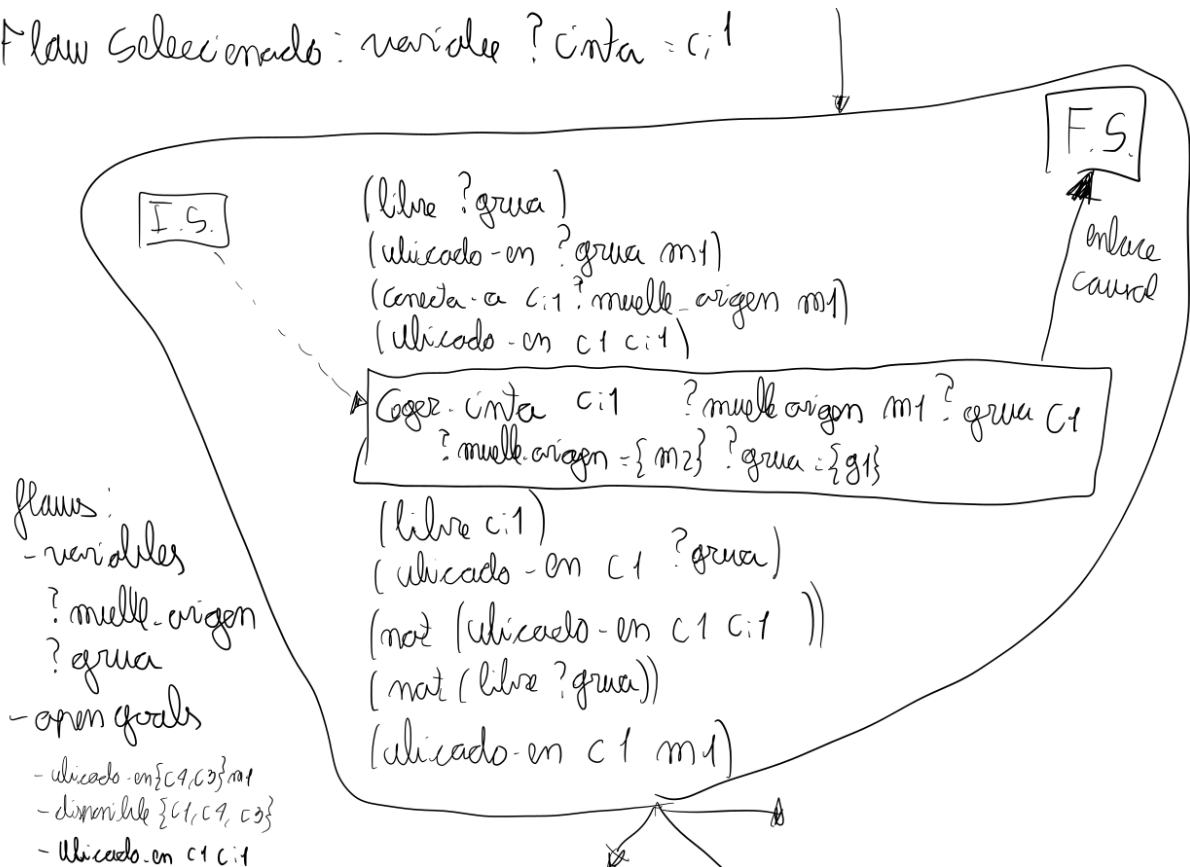 Flaw Seleccionado: variable ?cinta = ci1
F.S.
I.S.
(libre ?grua)
(ubicado-en ?grua m1)
(conecta-a ci1 ?muelle-origen m1)
(ubicado-en c1 ci1)
enlace
causal
Coger-cinta ci1 ?muelle origen m1 ?grua C1
?muelle-origen={m2} ?grua={g1}
(libre ci1)
(ubicado-en c1 ?grua)
(not (ubicado-en c1 ci1))
(not (libre ?grua))
(ubicado-en c1 m1)
flaws:
- variables
?muelle-origen
?grua
- open goals
- ubicado-en {c4,c3} m1
- disponible {c1,c4,c3}
- Ubicado-en c1 ci1